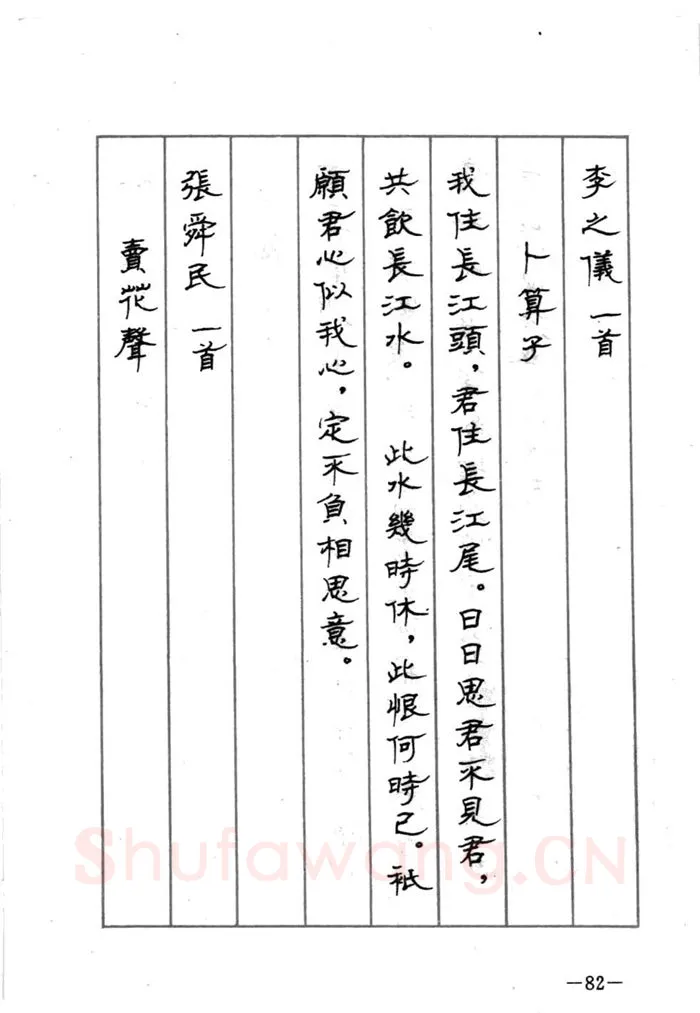 李之儀 一首
卜算子
我住長江頭，君住長江尾。日日思君不見君，
共飲長江水。 此水幾時休，此恨何時已。祇
願君心似我心，定不負相思意。
張舜民 一首
賣花聲
Shufawang.CN
—82—